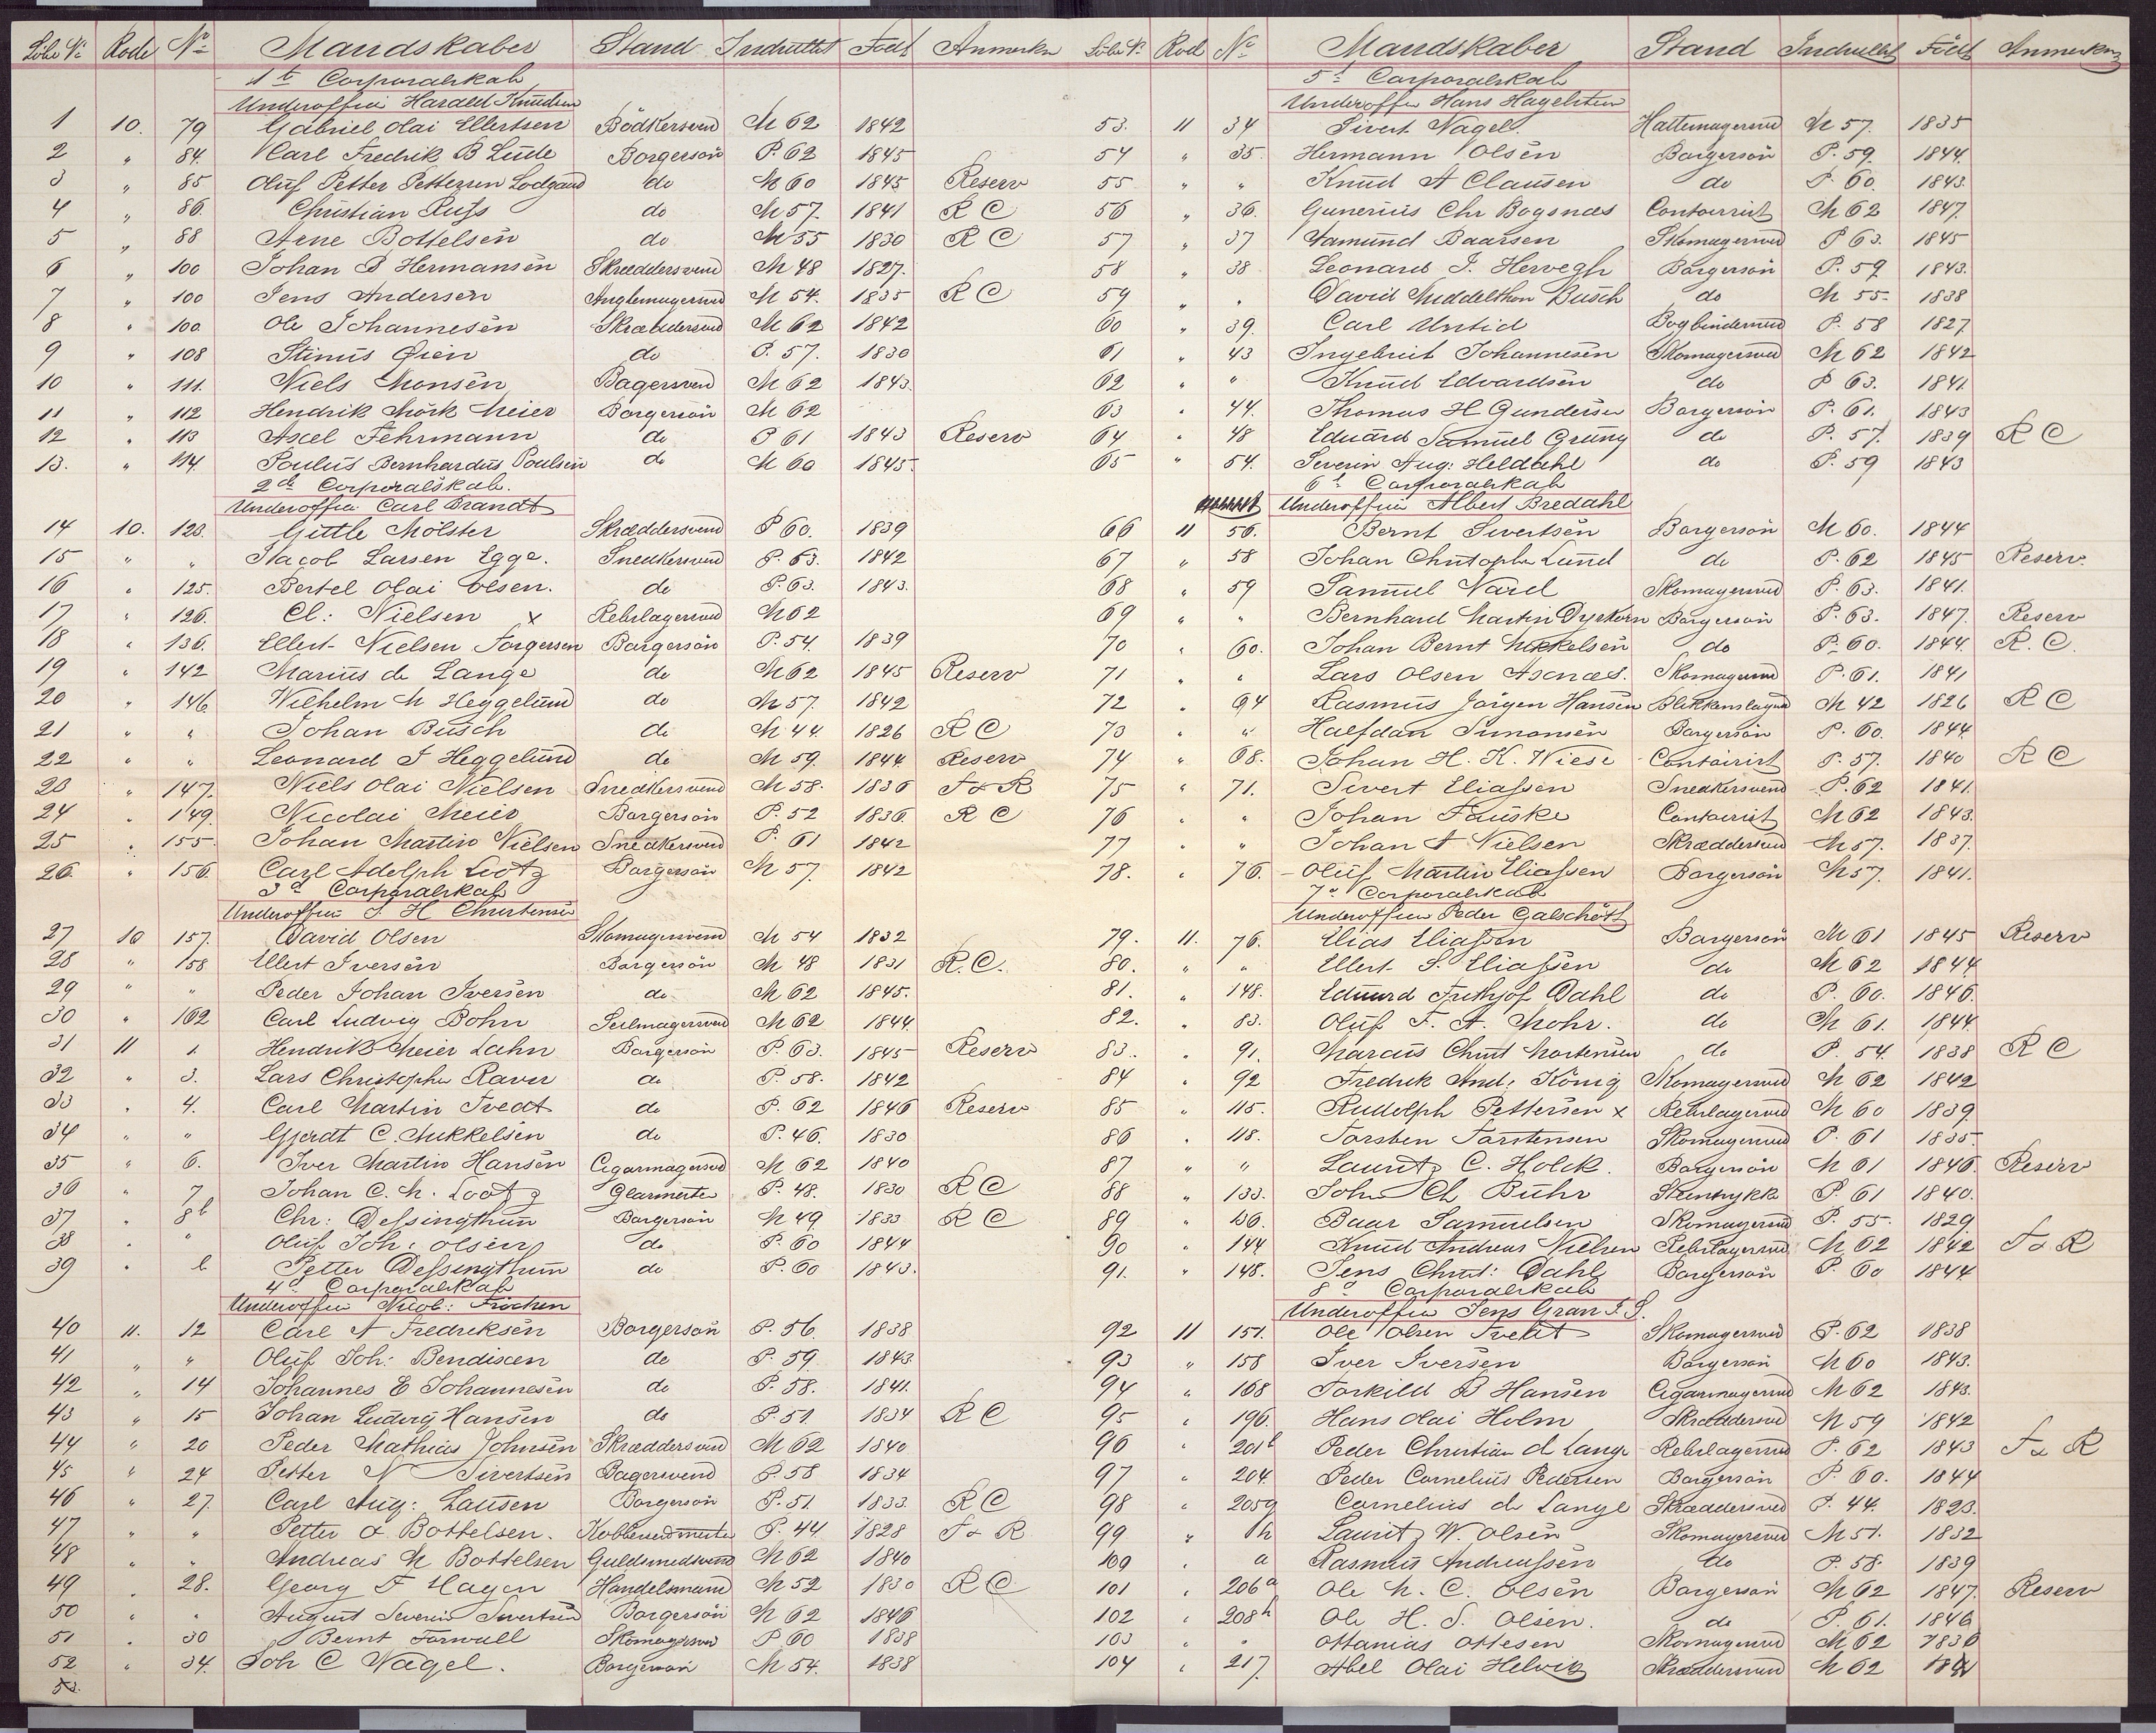 Löbe No Rode No Mandskaber Stand Indrullet Födt Anmerkn
1t Corporalskab
Underoffier Harald Knudsen
1 10. 79 Gabriel Olai Ellertsen Bödkersvend M 62 1842
2 " 84. Carl Fredrik B Lude Borgersön P. 62 1845
3 " 85 Oluf Petter Pettersen Lodgaard do M 60 1845 Reserv
4 " 86. Christian Russ do M 57. 1841 R C
5 " 88 Arne Bottelsen do M 55 1830 R C
6 " 100 Johan B Hermansen Skræddersvend M 48 1827.
7 " 100 Jens Andersen Anglemagersvend M 54. 1835 R C
8 " 100. Ole Johannesen Skræddersvend M 62 1842
9 " 108 Stinus Øien do P. 57. 1830
10 " 111. Niels Monsen Bagersvend M 62 1843.
11 " 112 Hendrik Mörk Meier Borgersön M 62
12 " 113 Axel Fehrmann do P 61 1843 Reserv
13. " 114. Poulus Bernhardus Poulsen do M 60 1845.
2de Corporalskab.
Underoffier Carl Brandt
14 10. 123. Gittle Mölster Skræddersvend P 60. 1839
15 " " Jacob Larsen Egge. Snedkersvend P. 63. 1842
16 " 125. Bertel Olai Olsen. do P. 63. 1843.
17 " 126. Cl: Nielsen x Rebslagersvend M 62
18 " 136. Ellert Nielsen Torgersen Borgersön P. 54. 1839
19 " 142 Marius de Lange do M 62 1845 Reserv
20 " 146. Wilhelm M Heggelund do M 57. 1842
21 " " Johan Busch do M 44. 1826 R C
22 " " Leonard J Heggelund do M 59. 1844 Reserv
23 " 147. Niels Olai Nielsen Snedkersvend M 58. 1836 T & R
24 " 149. Nicolai Meier Borgersön P. 52 1836. R C
25 " 155. Johan Martin Nielsen Snedkersvend P. 61 1842
26. " 156. Carl Adolph Lootz Borgersön M 57. 1842
3d Corporalskab
Underoffier J. H Christensen
27 10 157. David Olsen Skomagersvend M 54 1832
28 " 158 Ellert Iversen Borgersön M 48 1831 R. C.
29 " " Peder Johan Iversen do M 62 1845.
30 " 162 Carl Ludvig Bohn Seilmagersvend M 62 1844.
31 11 1. Hendrik Meier Lahn Borgersön P. 63. 1845 Reserv
32 " 3. Lars Christopher Raver do P. 58. 1842
33 " 4. Carl Martin Tvedt do P. 62 1846 Reserv
34 " " Gjerdt C. Mikkelsen do P. 46. 1830
35 " 6. Iver Martin Hansen Cigarmagersvd M 62 1840
36 " 7 Johan C. M. Lootz Glarmester P. 48. 1830 R C
37 " 8b Chr: Dessingthun Borgersön M 49 1833 R C
38 " " Oluf Joh: Olsen do P. 60 1844
39 " b Petter Dessingthun do P. 60 1843.
4d Corporalskab
Underoffier Nicol: Fröchen
40 11. 12 Carl A Fredriksen Borgersön P. 56. 1838
41 " " Oluf Joh: Bendixen do P. 59. 1843.
42 " 14 Johannes E Johannesen do P. 58. 1841.
43 " 15 Johan Ludvig Hansen do P. 51. 1834 R C
44 " 20 Peder Mathias Johnsen Skræddersvend M 62 1840
45 " 24 Petter N Sivertsen Bagersvend P. 58 1834
46 " 27. Carl Aug: Lausen Borgersön P. 51. 1833. R C
47 " " Petter A Bottelsen. Kobbersmedmester P. 44 1828 T & R
48 " " Andreas M Bottelsen Guldsmedsvend M 62 1840
49 " 28. Georg F Hagen Handelsmand M 52 1830 R C
50 " " August Severin Sivertsen Borgersön M 62 1846
51 " 30 Bernt Forwall Skomagersvd P 60 1838
52 " 34. Joh C Nagel. Borgersön M 54. 1838
53.
Löbe No Rod No Mandskaber Stand Indrullet Födt Anmerkn
5t Corporalskab
Underoffier Hans Hagelsteen
53. 11 34 Sivert Nagel. Hattemagersvd M 57. 1835
54 " 35. Hermann Olsen Borgersön P. 59. 1844.
55 " " Knud A Clausen do P. 60. 1843.
56 " 36. Gunerius Chr Bogsnæs Contoirist M 62 1847.
57 " 37 Aamund Baarsen Skomagersvd P 63. 1845
58 " 38 Leonard J. Herwegh Borgersön P. 59. 1843.
59 " " David Middelthon Busch do M 55. 1838
60 " 39. Carl Untid Bogbindersvd P. 58 1827.
61 " 43 Ingebrikt Johannesen Skomagersvd M 62 1842
62 " " Knud Edvardsen do P 63. 1841.
63 " 44. Thomas H Gundersen Borgersön P. 61. 1843
64 " 48 Eduard Samuel Grung do P. 57. 1839 R C
65 " 54. Severin Aug: Heldahl do P. 59 1843
6t Corporalskab
Underoffier Albert Bredahl
66 11 56. Bernt Sivertsen Borgersön M 60. 1844
67 " 58 Johan Christopher Lund do P. 62 1845 Reserv.
68 " 59 Samuel Vard Skomagersvd P. 63. 1841.
69 " " Bernhard Martin Dyrkorn Borgersön P. 63. 1847. Reserv
70 " 60. Johan Bernt Mikkelsen do P. 60. 1844. R. C.
71 " " Lars Olsen Asenæs. Skomagersvd P. 61. 1841
72 " 64 Rasmus Jörgen Hansen Blikkenslagersvd M 42 1826 R C
73 " " Halfdan Simonsen Borgersön P. 60. 1844
74 " 68. Johan H. K. Wiese Contoirist P. 57. 1840 R C
75 " 71. Sivert Eliassen Snedkersvend P. 62 1841.
76 " " Johan Fauske Contoirist M 62 1843.
77 " " Johan A Nielsen Skræddersvd M 57. 1837.
78. " 76. Oluf Martin Eliassen Borgersön M 57. 1841.
7d Corporalskab
Underoffier Peder Galschöt
79. 11. 76. Elias Eliassen Borgersön M 61 1845 Reserv
80. " " Ellert S. Eliassen do M 62 1844
81. " 148. Eduard Frithjof Dahl do P. 60. 1846.
82. " 83. Oluf F. A. Mohr. do M 61. 1844.
83. " 91. Marcus Christ Mortensen do P. 54. 1838 R C
84 " 92 Fredrik And: König Skomagersvd M 62 1842
85 " 115. Rudolph Pettersen x Rebslagersvd M 60 1839.
86 " 118. Torsten Torstensen Skomagersvd P. 61 1835.
87 " " Lauritz C. Holck. Borgersön M 61 1846. Reserv
88 " 133. John Ch Buhr Stentrykk P. 61 1840.
89 " 136. Baar Samuelsen Skomagersvd P. 55. 1829
90 " 144 Knud Andreas Nielsen Rebslagersvd M 62 1842 T & R
91. " 148. Jens Christ: Dahl Borgersön P. 60 1844
8d Corporalskab
Underoffier Jens Gran J. S.
92 11 151. Ole Olsen Tvedt Skomagersvd P. 62 1838
93 " 158 Iver Iversen Borgersön M 60 1843.
94 " 168 Torkild B Hansen Cigarmagersvd M 62 1843.
95 " 196. Hans Olai Holm Skræddersvd M 59 1842
96 " 201b Peder Christian d Lange Rebslagersvd P. 62 1843 T & R
97 " 204. Peder Cornelius Pedersen Borgersön P. 60. 1844
98 " 205g Cornelius de Lange Skræddersvd P. 44. 1823.
99 " h Lauritz W. Olsen Skomagersvd M 51. 1832
100 " a Rasmus Andreassen do P. 58. 1839
101 " 206a Ole M. C. Olsen Borgersön M 62 1847. Reserv
102 " 208h Ole H. S. Olsen. do P. 61. 1846
103 " " Ottanius Ottesen Skomagersvd M 62 1836
104 " 217. Abel Olai Helvik Skræddersvend M 62